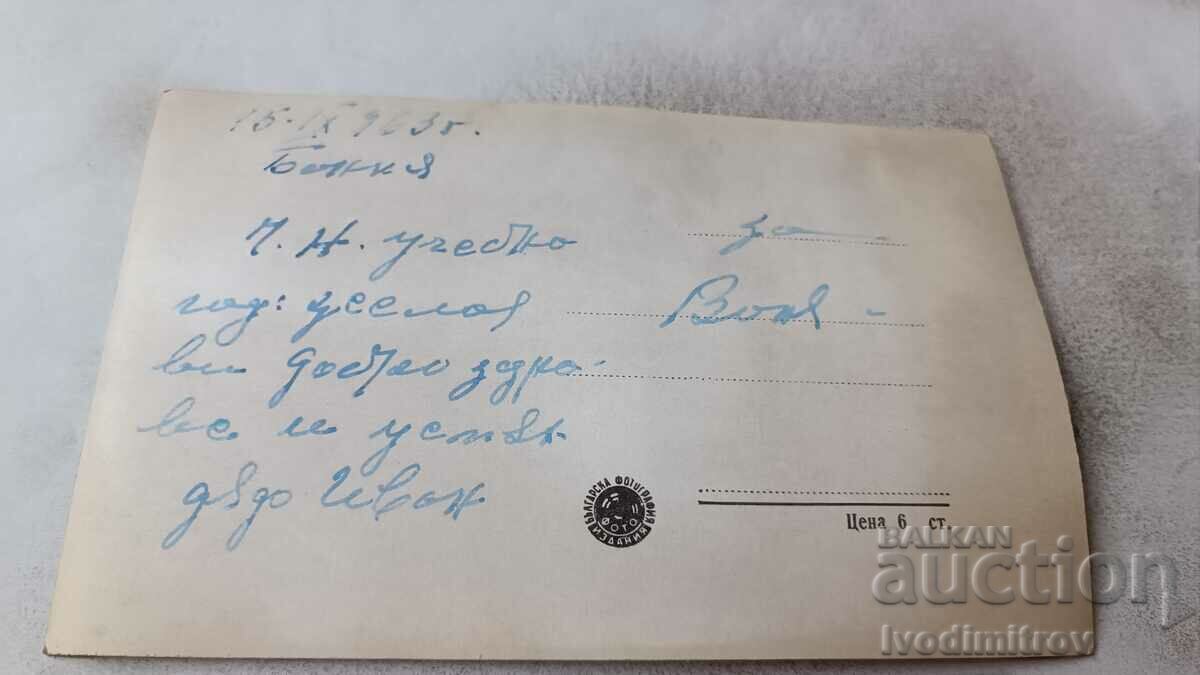 15.IX 963 г.
Банкя
Ч. Н. учебна
год: желая
ви добро здра-
ве и успех
дядо Иван
за
Воля -
БЪЛГАРСКА ФОТОГРАФИЯ
ФОТО
ИЗДАНИЯ
Цена 6 ст.
BALKAN
auction
Ivodimitrov